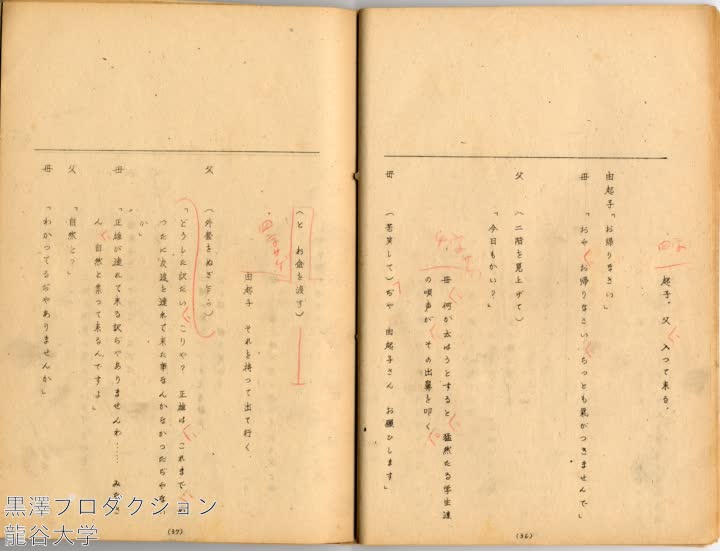 起子。父 入つて来る。
由起子「お帰りなさい」
母 「おやお帰りなさい ちっとも気がつきませんで」
父 （二階を見上げて）
「今日もかい？」
母 何か云はうとすると 猛然たる学生達
の唄声が その出鼻を叩く
母 （苦笑して）ぢや 由起子さん お願ひします」
(36)
（と お金を渡す）
由起子 それを持つて出て行く。
父 （外套をぬぎ乍ら）
「どうした訳だい こりや？ 正雄は これまで
つたに友達を連れて来た事なんかなかつたぢやない
か」
母 「正雄が連れて来る訳ぢやありませんわ…… みなさ
ん 自然と集って来るんですよ」
父 「自然と？」
母 「わかってるぢやありませんか」
(37)
黒澤プロダクション
龍谷大学